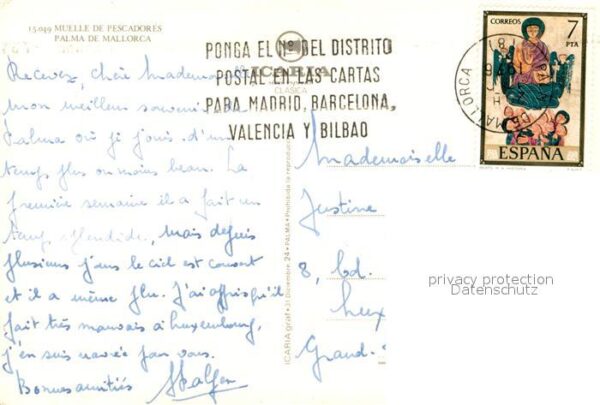 15.049 MUELLE DE PESCADORES
PALMA DE MALLORCA
PONGA EL Nº DEL DISTRITO
POSTAL EN LAS CARTAS
PARA MADRID, BARCELONA,
VALENCIA Y BILBAO
CORREOS
7
PTA
ESPAÑA
MALLORCA
ICARIA
CLASICA
Recevez, chère Mademoi
mon meilleur souvenir de
Palma où je jouis d'un
temps plus ou moins beau. La
première semaine il a fait un
temps splendide, mais depuis
plusieurs jours le ciel est couvert
et il a même plu. J'ai appris qu'il
fait très mauvais à Luxembourg,
j'en suis navrée pour vous.
Bonnes amitiés
ICARIA graf • 31 Diciembre, 24 • PALMA • Prohibida la reproducción
Mademoiselle
Justine
8, bd.
Lux
Grand-
privacy protection
Datenschutz